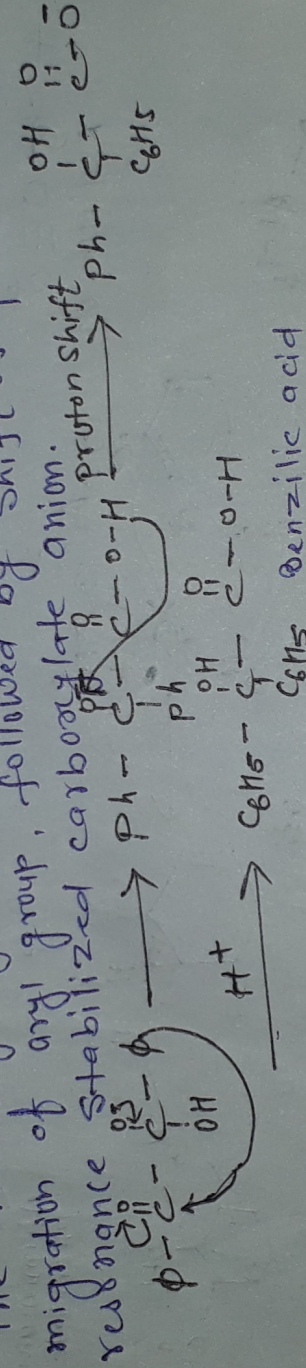 migration of aryl group, followed by shift
resonance stabilized carboxylate anion.
O O OH O O OH O
φ-C-C-φ → Ph-C-C-O-H proton shift → Ph-C-C-O-
OH Ph C6H5
OH O
H+ → C6H5-C-C-O-H
C6H5 Benzilic acid